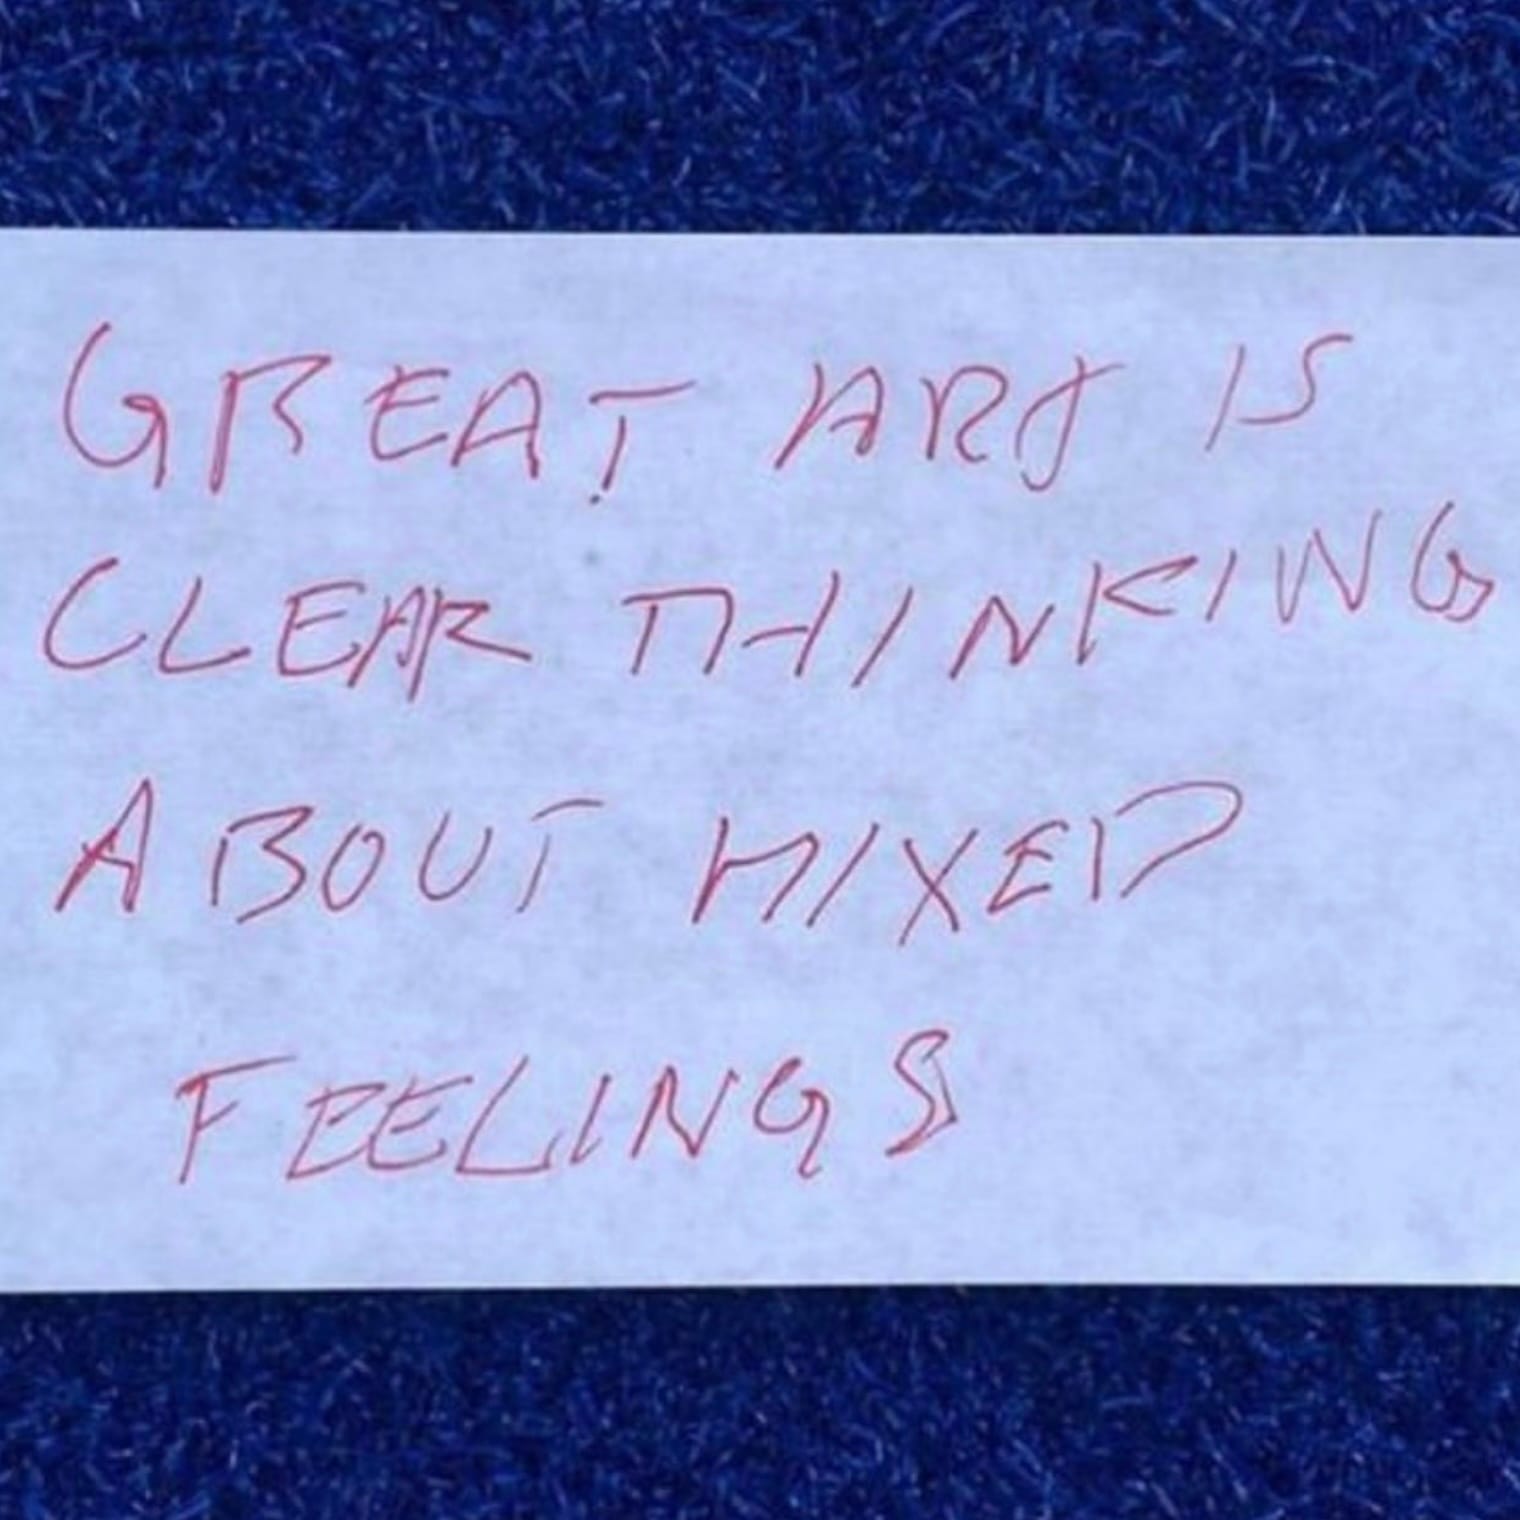 GREAT ART IS
CLEAR THINKING
ABOUT MIXED
FEELINGS